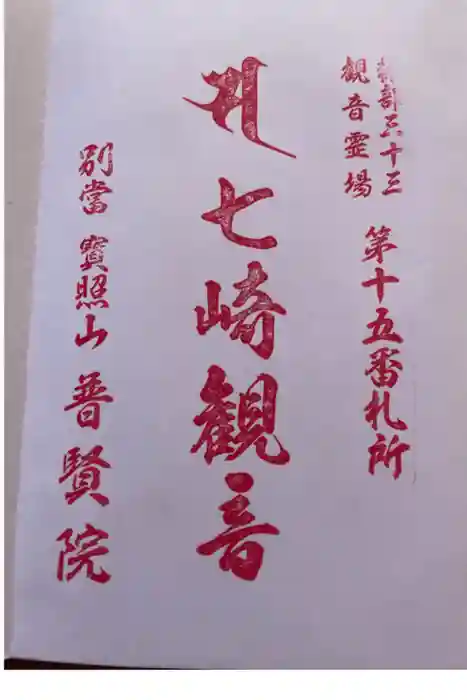 糠部三十三
観音霊場
第十五番札所
七崎観音
別當 寶照山 普賢院